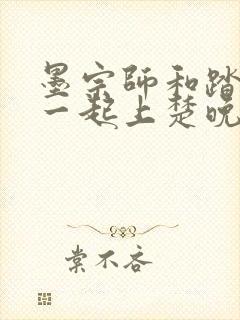 墨宗师和踏
一起上楚晚
棠不吝